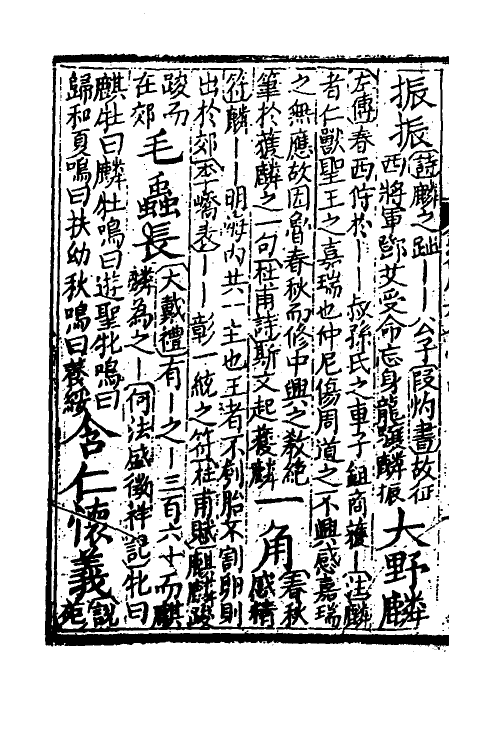 振振詩麟之趾——公子段灼書故征
西將軍鄧艾受命忘身龍驤麟振大野麟
左傳春西狩於——叔孫氏之車子鉏商獲—注麟
者仁獸聖王之嘉瑞也仲尼傷周道之不興感嘉瑞
之無應故因魯春秋而修中興之教絕
筆於獲麟之一句杜甫詩斯文起獲麟一角春秋
感精
符麟——明海内共一主也王者不刳胎不剖卵則
出於郊李嶠表——彰一統之符杜甫賦麒麟踆
踆而
在郊毛蟲長大戴禮有—之—三百六十而麒
麟為之—何法盛徵祥記牝曰
麒牡曰麟牡鳴曰遊聖牝鳴曰
歸和夏鳴曰扶幼秋鳴曰養綏含仁懷義說
苑